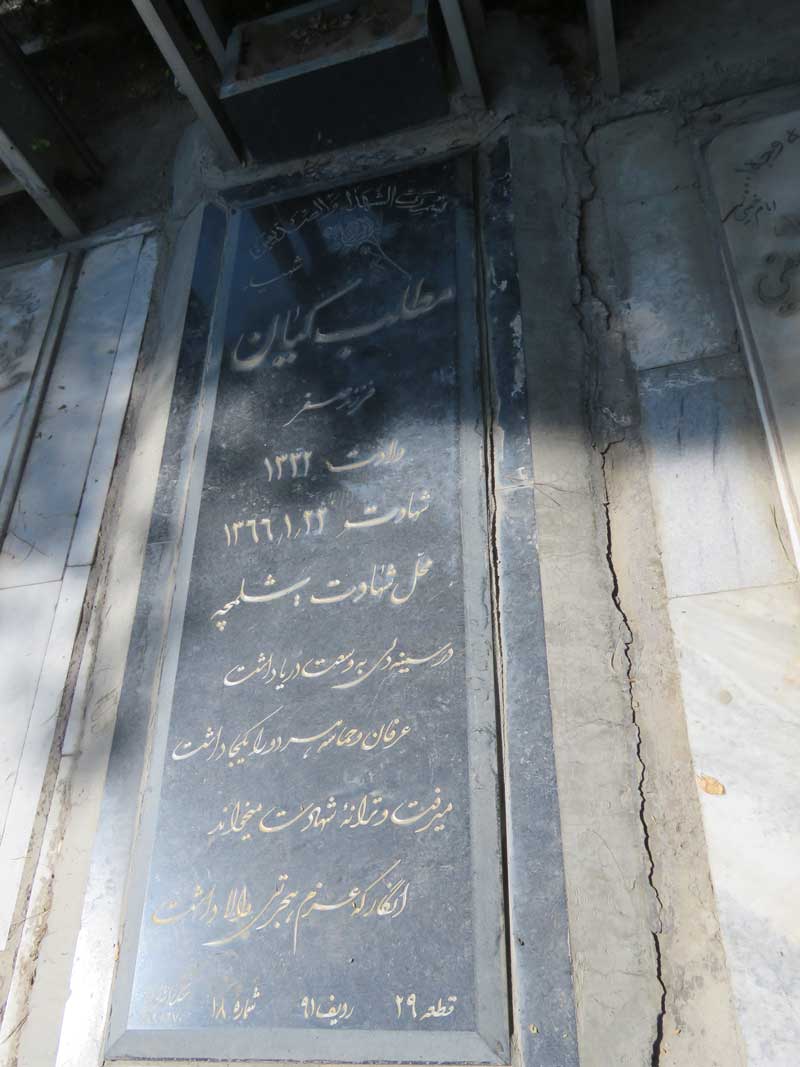 شهید
مطلب کیان
فرزند صفر
ولادت ۱۳۳۲
شهادت ۱۳۶۶٫۱٫۲۲
محل شهادت شلمچه
در سینه دلی به وسعت دریا داشت
عرفان و حماسه هر دو را یکجا داشت
میرفت و ترانهٔ شهادت میخواند
انگار که عزم هجرتی والا داشت
قطعه ۲۹ ردیف ۹۱ شماره ۱۸